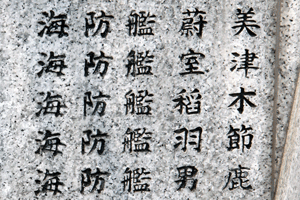 海防艦蔚美
海防艦室津
海防艦稻木
海防艦羽節
海防艦男鹿